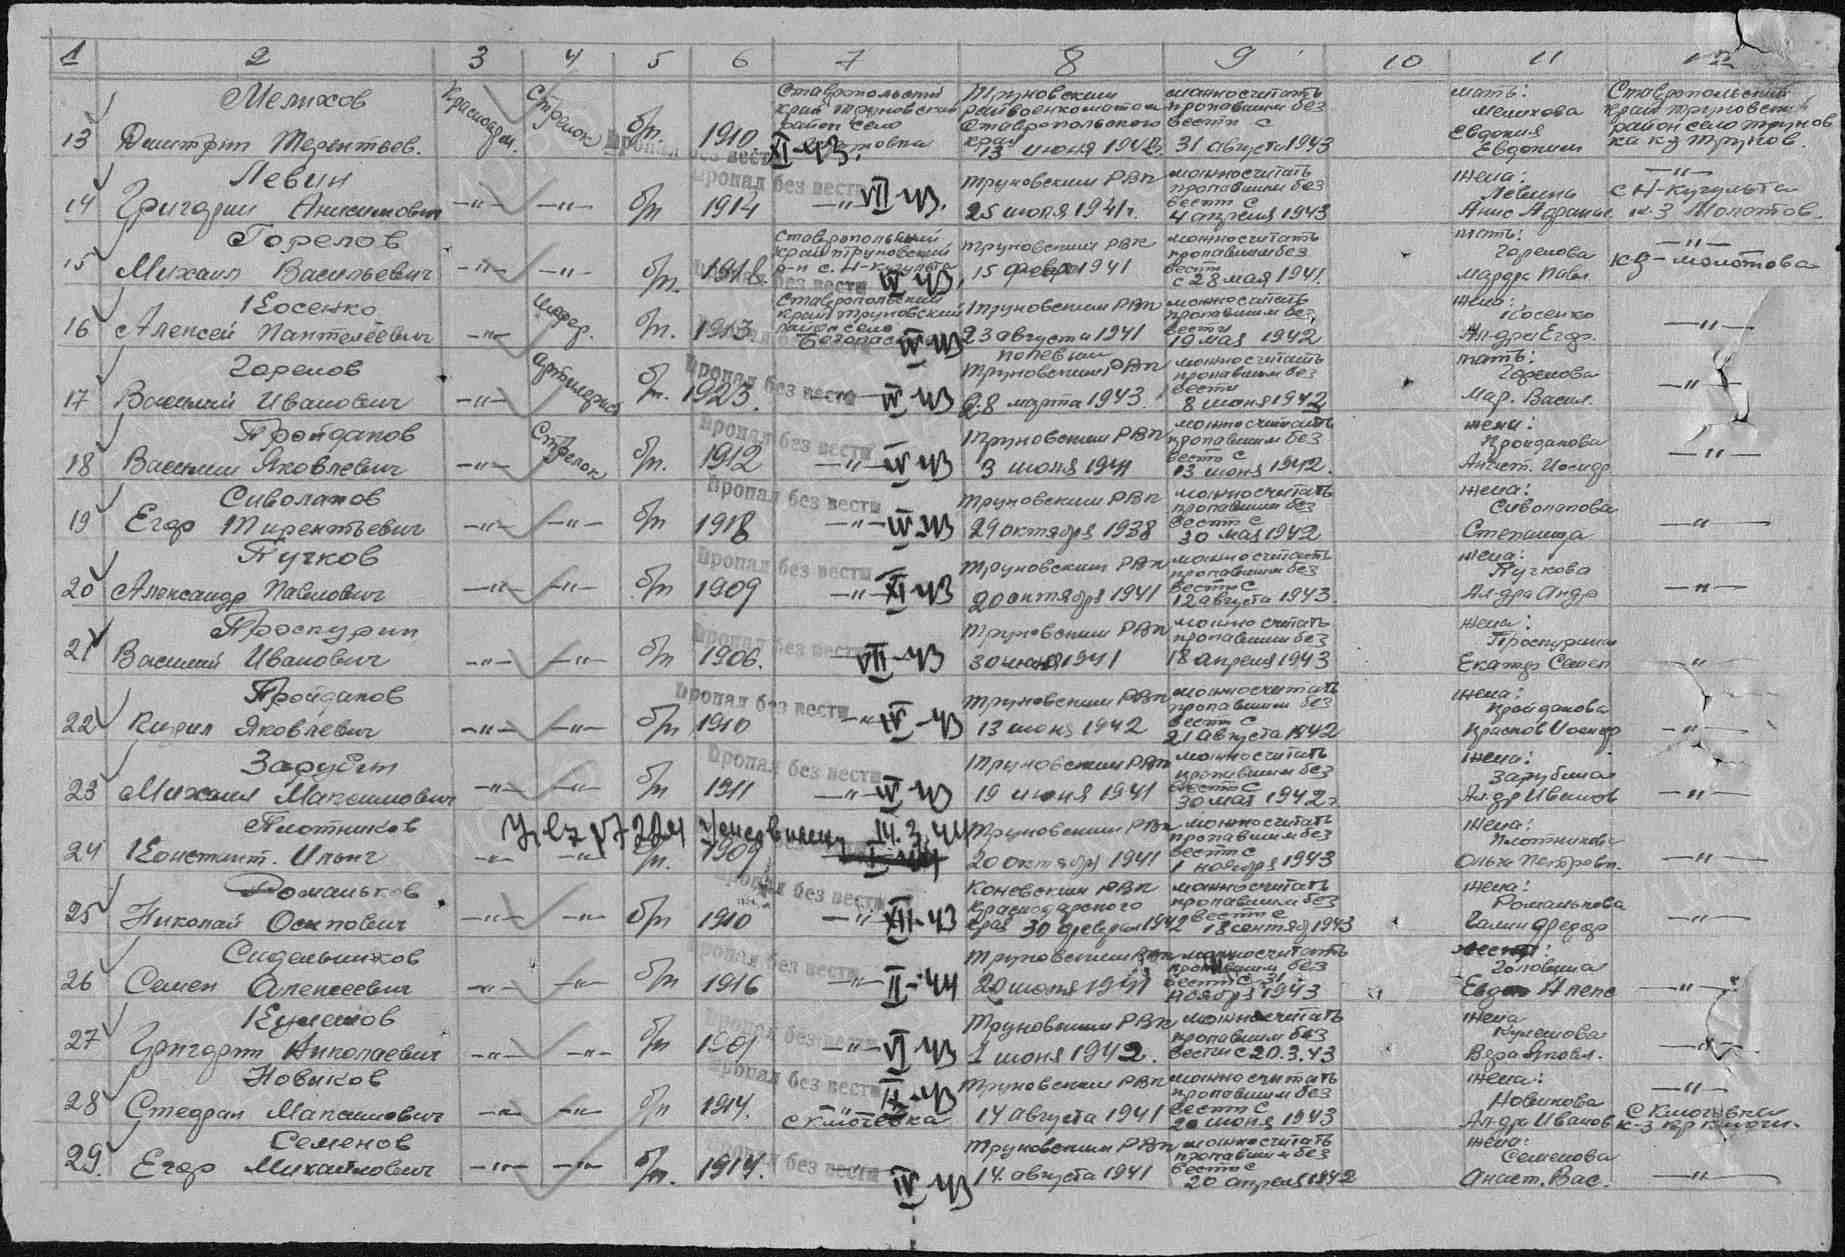 1 2 3 4 5 6 7 8 9 10 11 12
13 Мелихов Дмитрий Терентьев. Красноарм. Стрелок б/п. 1910
Ставропольский край Труновский район село
Труновским райвоенкоматом Ставропольского края 13 июня 1942.
можно считать пропавшим без вести с 31 августа 1943
мать: Мелихова Евдокия Евдоким
Ставропольский край Труновский район село Трунов
Пропал без вести XI-43.
14 Левин Григорий Анисимович -"- -"- б/п 1914 -"-
Пропал без вести VII-43.
Труновским РВК 25 июля 1941г.
можно считать пропавшим без вести с 4 апреля 1943
жена: Левина Анис
-"- с Н-Кугульта к-з Молотов.
15 Горелов Михаил Васильевич -"- -"- б/п. 1918
Ставропольский край Труновский р-н с. Н-Кугульта
без вести IV 43.
Труновский РВК 15 февр 1941
можно считать пропавшим без вести с 28 мая 1941.
мать: Горелова Павл
-"- кз-Молотова
16 Косенко Алексей Пантелеевич -"- б/п. 1913
Ставропольский край Труновский район село
IV-43
Труновским РВК 23 августа 1941
можно считать пропавшим без вести 19 мая 1942
жена: Косенко Ал-дра Егор.
-"-
17 Горелов Василий Иванович -"- Артилерист б/п. 1923.
Пропал без вести -"- IV 43
Труновским РВК 28 марта 1943.
можно считать пропавшим без вести 8 июня 1942
мать: Горелова Мар. Васил.
-"-
18 Пройдаков Василий Яковлевич -"- Стрелок б/п. 1912
Пропал без вести -"- IV 43
Труновским РВК 3 июля 1941
можно считать пропавшим без вести с 13 июня 1942.
жена: Пройдакова
-"-
19 Сиволапов Егор Тирентьевич -"- -"- б/п 1918
Пропал без вести -"- IV-43
Труновским РВК 29 октября 1938
можно считать пропавшим без вести с 30 мая 1942
жена: Сиволапова Степанида
-"-
20 Пучков Александр Павлович -"- -"- б/п 1909
Пропал без вести -"- XI-43
Труновским РВК 20 октября 1941
можно считать пропавшим без вести с 12 августа 1943.
жена: Пучкова Ал-дра Андр
-"-
21 Проскурин Василий Иванович -"- -"- б/п 1906.
Пропал без вести VII-43
Труновским РВК 30 июня 1941
можно считать пропавшим без 18 апреля 1943
жена: Проскурина Екатер Семен
-"-
22 Пройдаков Кирил Яковлевич -"- -"- б/п 1910
Пропал без вести -"- IV-43
Труновским РВК 13 июня 1942
можно считать пропавшим без вести с 21 августа 1942
жена: Пройдакова
-"-
23 Зарубин Михаил Максимович -"- -"- б/п 1911
Пропал без вести -"- IV 43
Труновским РВК 19 июня 1941
можно считать пропавшим без вести с 30 мая 1942г
жена: Зарубина Ал-др Иванов
-"-
24 Плотников Констант. Ильич -"- -"- б/п. 1909
14.3.44
Труновским РВК 20 октября 1941
можно считать пропавшим без вести с 1 ноября 1943
жена: Плотникова Ольга Петровн.
-"-
25 Романьков Николай Осипович -"- -"- б/п 1910
Пропал без вести -"- XII-43
РВК Краснодарского края 30 февраля 1942
можно считать пропавшим без вести с 18 сентяб 1943
жена: Романькова Галин Федор
-"-
26 Сидельников Семен Алексеевич -"- -"- б/п 1916
Пропал без вести -"- II-44
Труновским РВК 20 июля 1941
можно считать пропавшим без вести с ноября 1943
Головина
-"-
27 Кулешов Григорий Николаевич -"- -"- б/п
Пропал без вести -"- VI 43
Труновским РВК 1 июня 1942.
можно считать пропавшим без вести с 20.3.43
жена Кулешова Вера Яковл.
-"-
28 Новиков Стефан Максимович -"- -"- б/п 1914.
Пропал без вести IX-43
с Ключевка
Труновским РВК 14 августа 1941
можно считать пропавшим без вести с 20 июня 1943
жена: Новикова Ал-др Иванов
-"- с Ключевка
29. Семенов Егор Михайлович -"- -"- б/п. 1914.
Пропал без вести IV 43
Труновским РВК 14. августа 1941
можно считать пропавшим без вести с 20 апреля 1942
жена: Семенова Анаст. Вас.
-"-